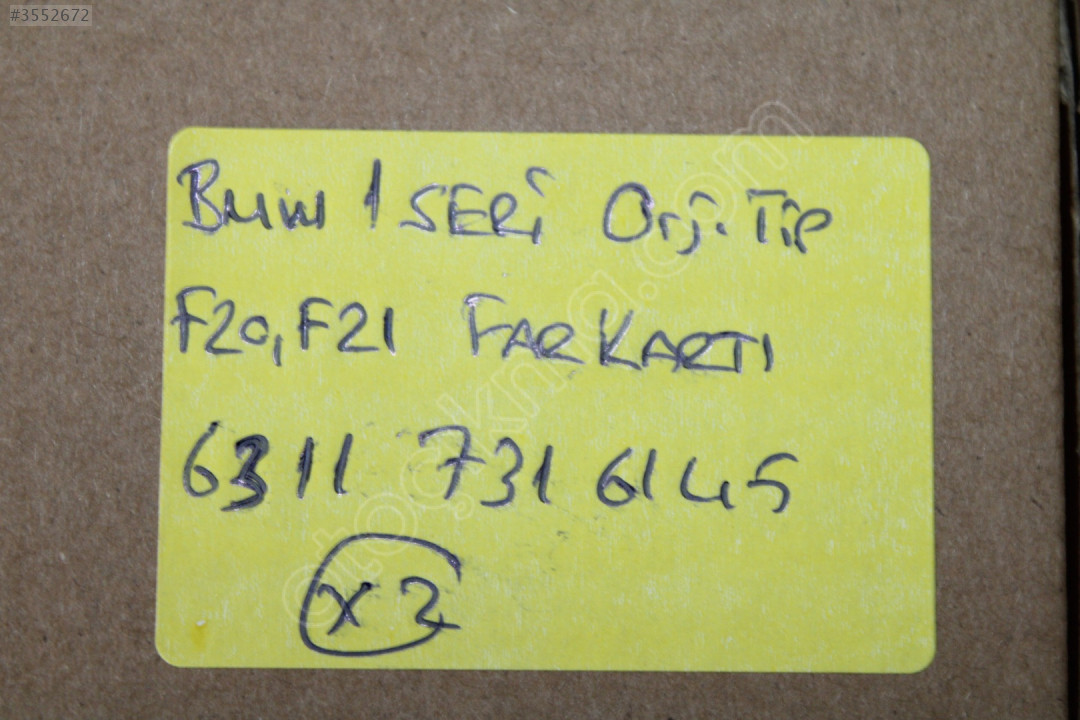 #3552672
Bmw 1 SERİ Orj. TİP
F20, F21 FAR KARTI
6311 731 6145
x 2
otocikma.com